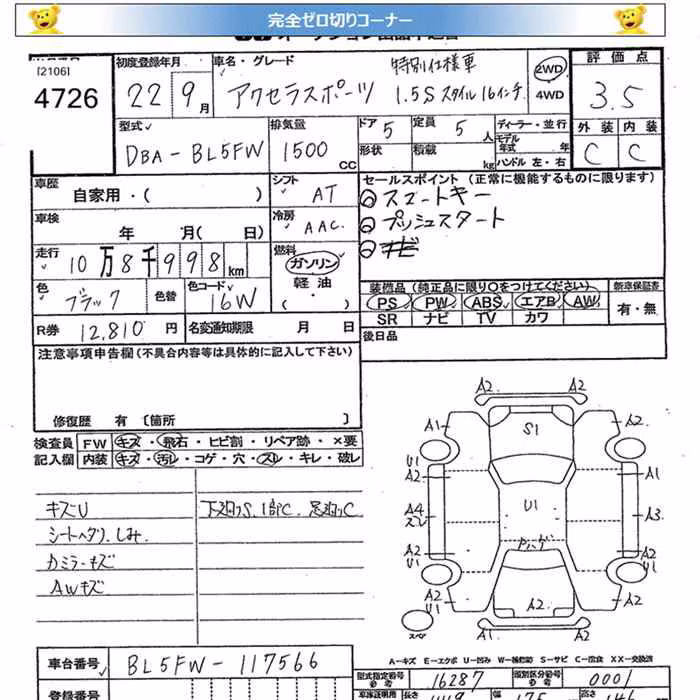 完全ゼロ切りコーナー
[2106]
4726
初度登録年月
22 9月
車名・グレード
特別仕様車
アクセラスポーツ 1.5S スタイル16インチ
2WD
4WD
評価点
3.5
外装 内装
C C
型式
DBA-BL5FW
排気量
1500 CC
ドア 5
定員 5人
形状
積載 kg
ディーラー・並行
モデル年式 年
ハンドル 左・右
車歴
自家用・( )
シフト
AT
車検
年 月( 日)
冷房
AAC
走行
10万8千998km
燃料
ガソリン
軽油
( ・ )
色
ブラック
色替
色コード
16W
R券 12,810円
名変通知期限 月 日
セールスポイント (正常に機能するものに限ります)
スマートキー
プッシュスタート
装備品 (純正品に限り○をつけてください)
PS PW ABS エアB AW
SR ナビ TV カワ
新車保証書
有・無
後日品
注意事項申告欄(不具合内容等は具体的に記入して下さい)
修復歴 有 〔箇所 〕
検査員記入欄
FW キズ・飛石・ヒビ割・リペア跡・×要
内装 キズ・汚レ・コゲ・穴・スレ・キレ・破レ
キズU
シートヘタリ、しみ
カミラーキズ
AWキズ
下廻りS、1部C、足廻りC
A2 A2
A1 S1 A2
U1
A2 A1
A4 U1 A3
スレ
A2 A2
U1 U1
A2 A2 A2
U1
スペア
A2 A2
A-キズ E-エクボ U-凹み W-補修跡 S-サビ C-腐食 XX-交換済
車台番号
BL5FW-117566
型式指定番号
16287
類別区分番号
0001
登録番号